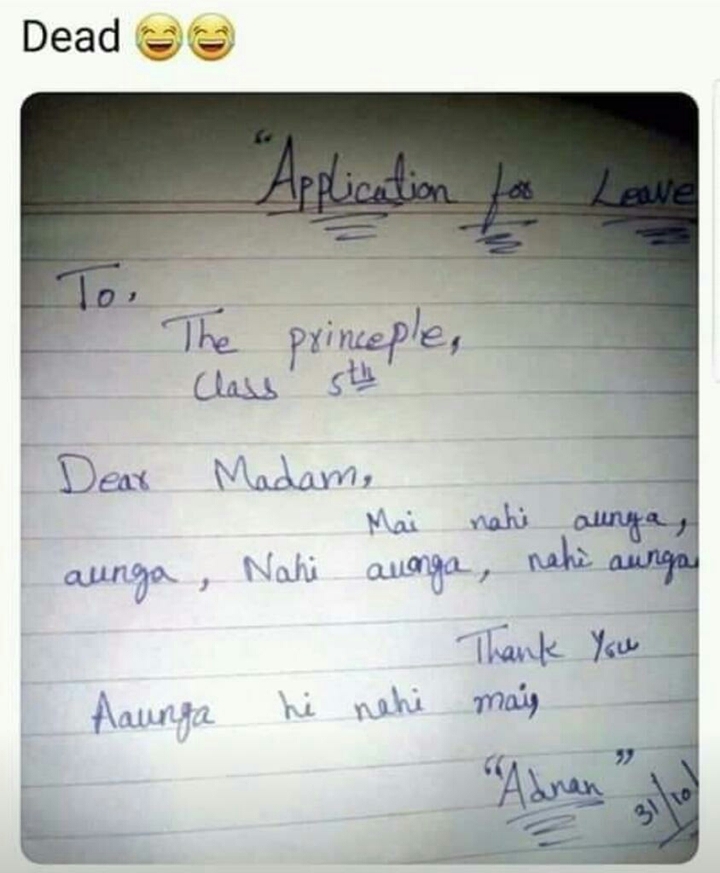 Dead 😂😂
"Application for Leave
To,
The princeple,
Class 5th
Dear Madam,
Mai nahi aunga,
aunga, Nahi auonga, nahi aunga
Thank You
Aaunga hi nahi mai,
"Adnan"
31/10/